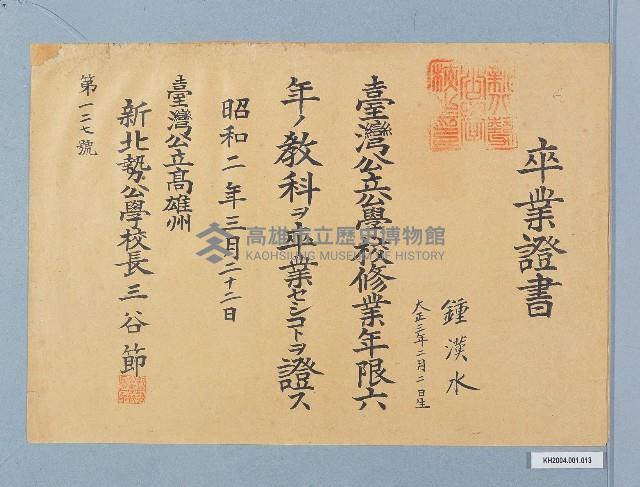 卒業證書
鍾漢水
大正三年二月二日生
臺灣公立公學校修業年限六
年ノ教科ヲ卒業セシコトヲ證ス
昭和二年三月二十二日
臺灣公立高雄州
新北勢公學校長三谷節
第一二七號
高雄市立歷史博物館
KAOHSIUNG MUSEUM OF HISTORY
KH2004.001.013